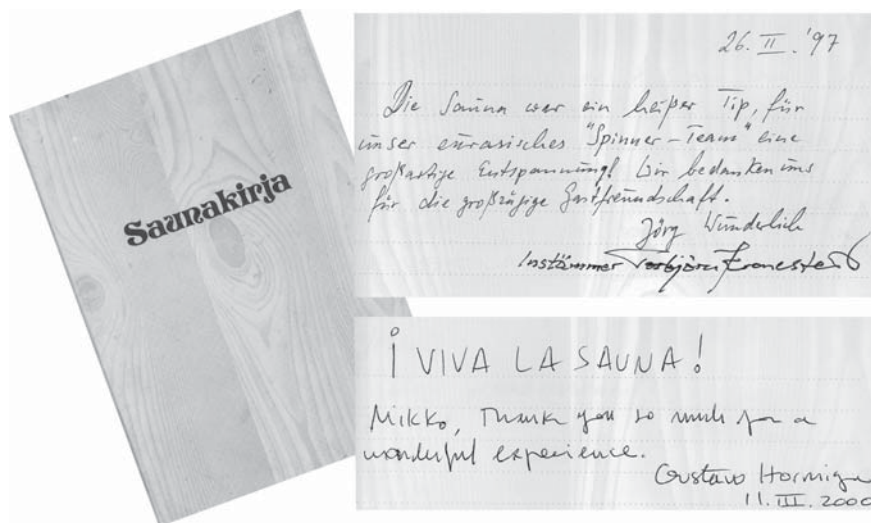 Saunakirja
26. II. '97
Die Sauna war ein heißer Tip, für
unser eurasisches "Spinner-Team" eine
großartige Entspannung! Wir bedanken uns
für die großzügige Gastfreundschaft.
Jörg Wunderlich
Instämmer Torbjörn
¡VIVA LA SAUNA!
Mikko, Thank you so much for a
wonderful experience.
Gustavo Hormiga
11. III. 2000